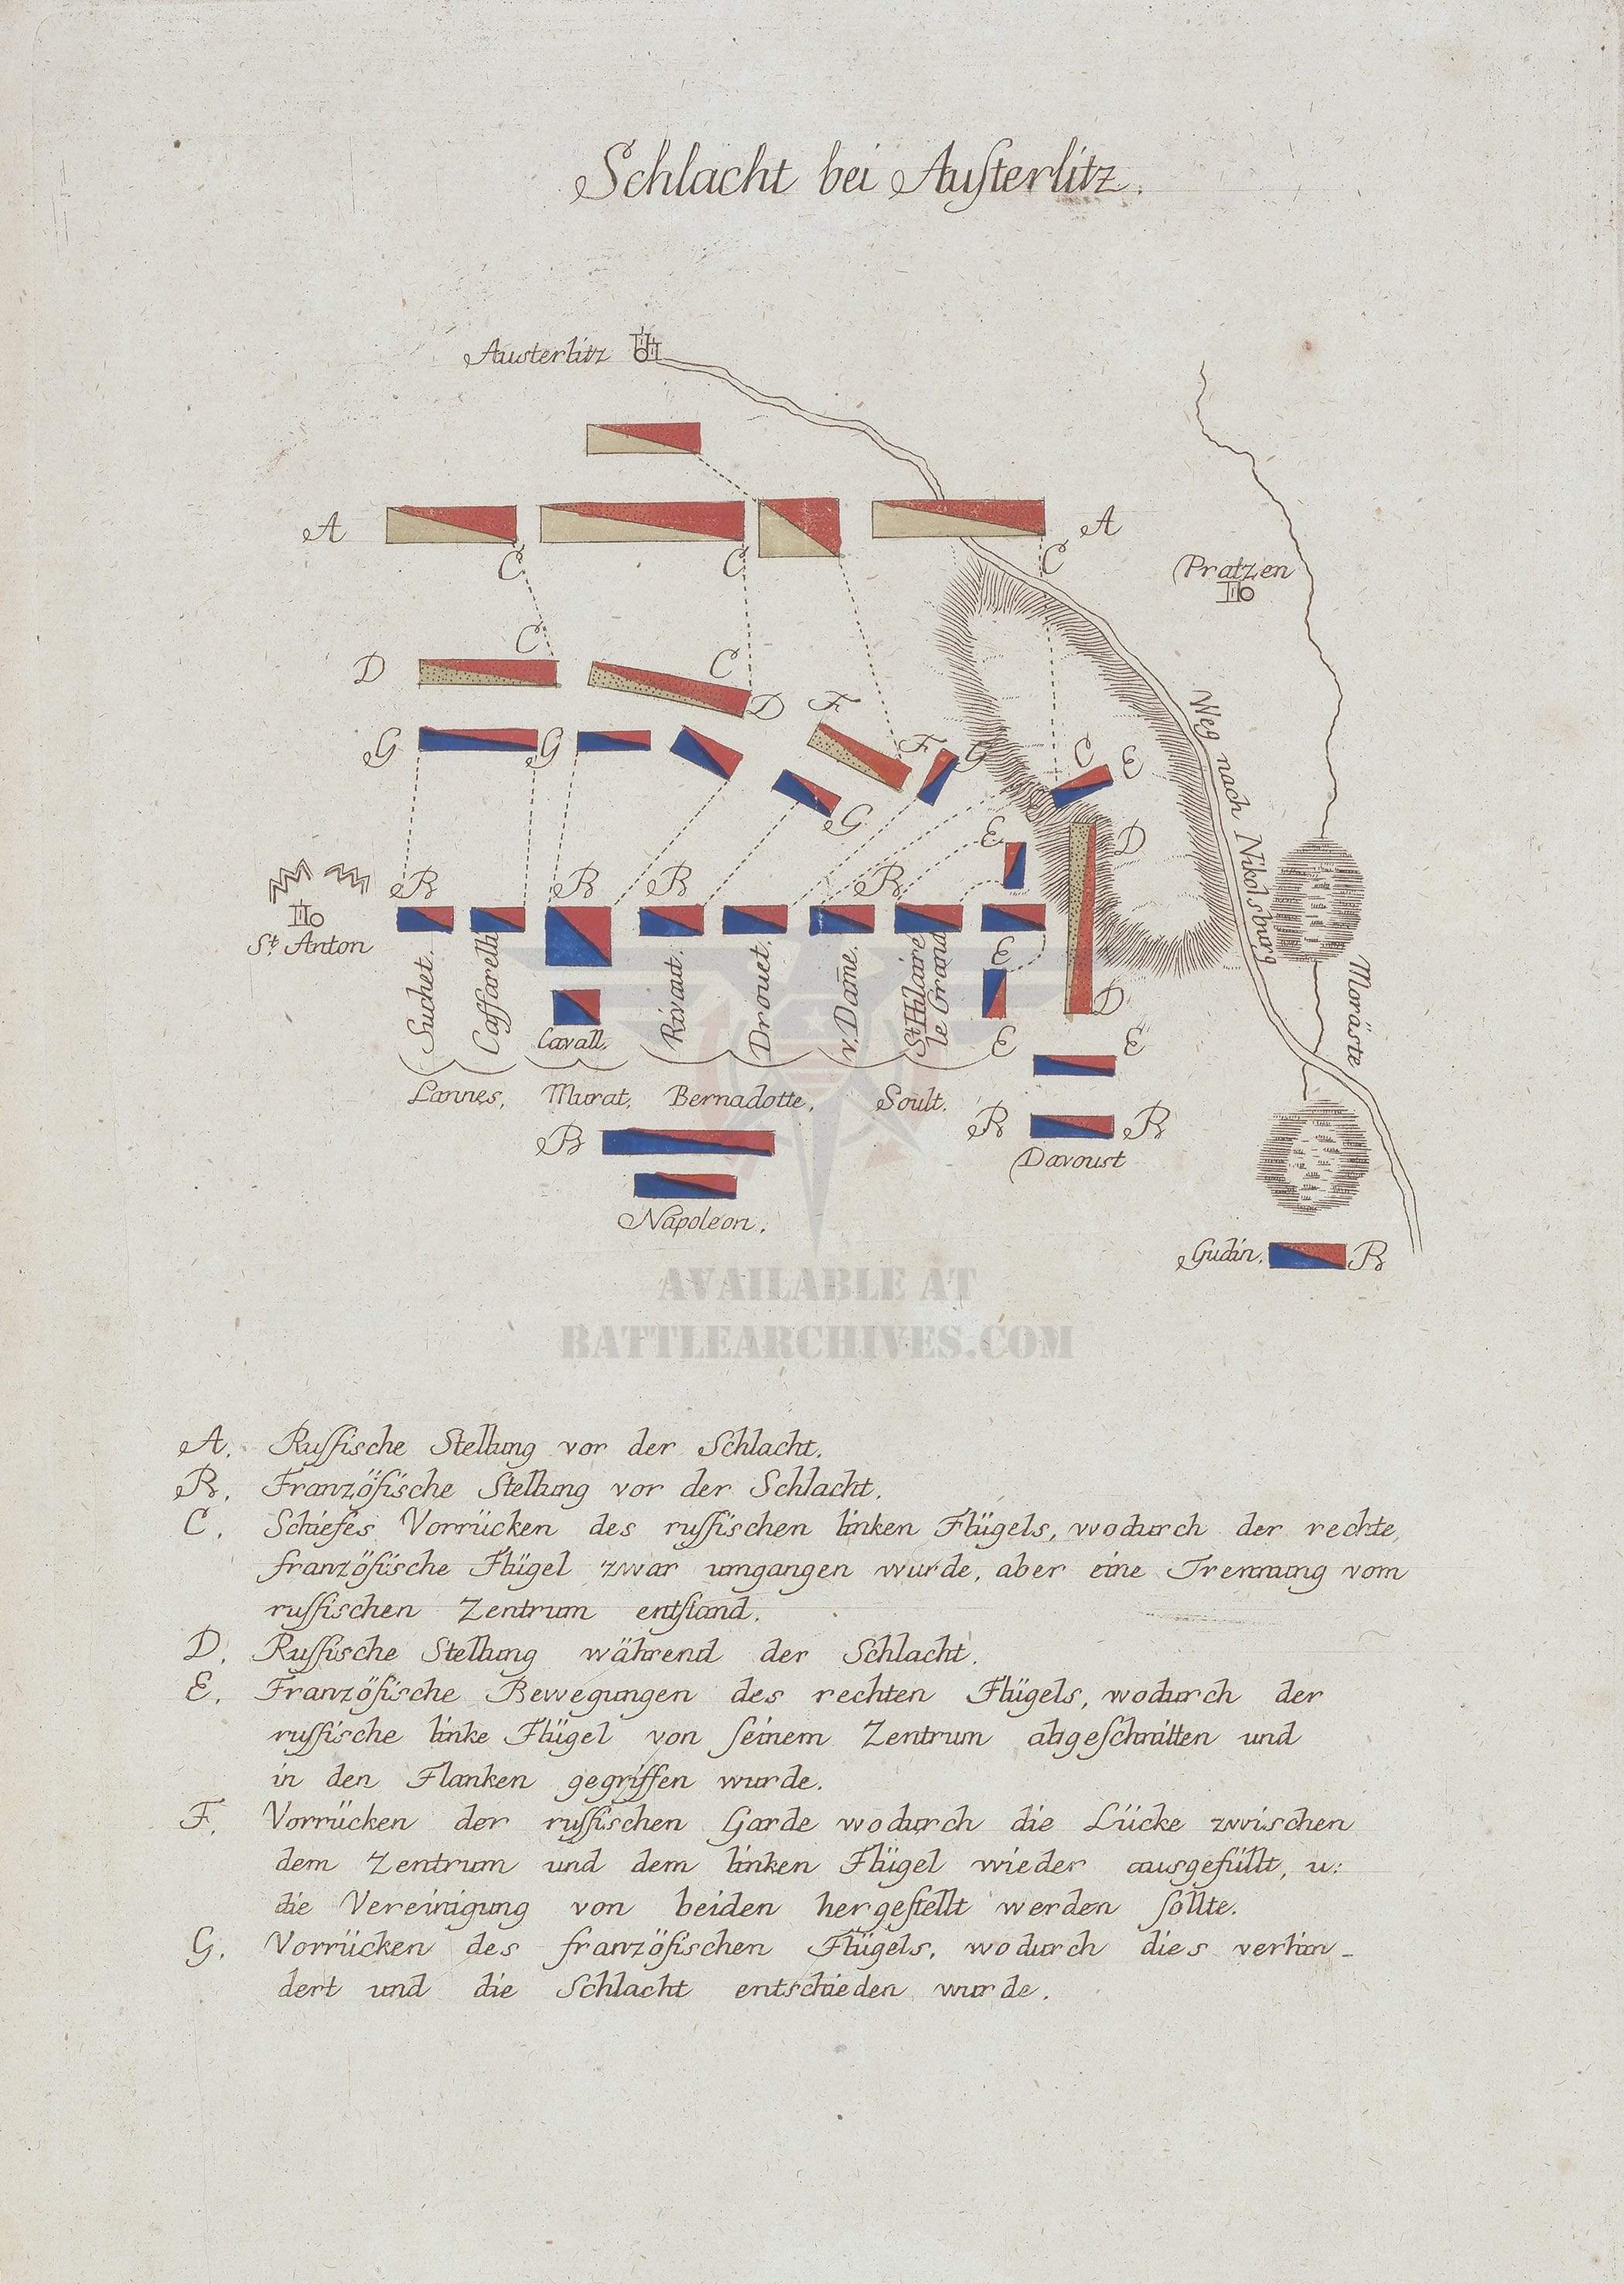 Schlacht bei Auſterlitz.
Austerlitz
A
A
C
C
C
Pratzen
C
C
D
D
F
G
G
F
G
C
E
Weg nach Nikolsburg
G
E
D
B
B
B
B
St. Anton
E
D
Moräste
Suchet.
Caffarelli
Cavall.
Rivaut.
Drouet.
v. Dame.
St Hilaire
le Grand
E
E
Lannes,
Murat,
Bernadotte,
Soult.
B
B
B
Davoust
Napoleon.
Gudin.
B
AVAILABLE AT
BATTLEARCHIVES.COM
A. Ruſſische Stellung vor der Schlacht.
B. Franzöſische Stellung vor der Schlacht.
C. Schiefes Vorrücken des ruſſischen linken Flügels, wodurch der rechte,
franzöſische Flügel zwar umgangen wurde, aber eine Trennung vom
ruſſischen Zentrum entſtand.
D. Ruſſische Stellung während der Schlacht.
E. Franzöſische Bewegungen des rechten Flügels, wodurch der
ruſſische linke Flügel von ſeinem Zentrum abgeſchnitten und
in den Flanken gegriffen wurde.
F. Vorrücken der ruſſischen Garde wodurch die Lücke zwischen
dem Zentrum und dem linken Flügel wieder ausgefüllt, u:
die Vereinigung von beiden hergeſtellt werden ſollte.
G. Vorrücken des franzöſischen Flügels, wodurch dies verhin-
dert und die Schlacht entschieden wurde.